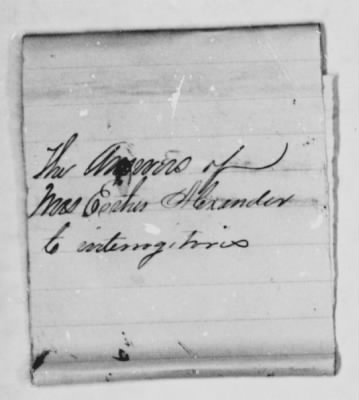 The Answers of
Mrs Esther Alexander
to interrogitories